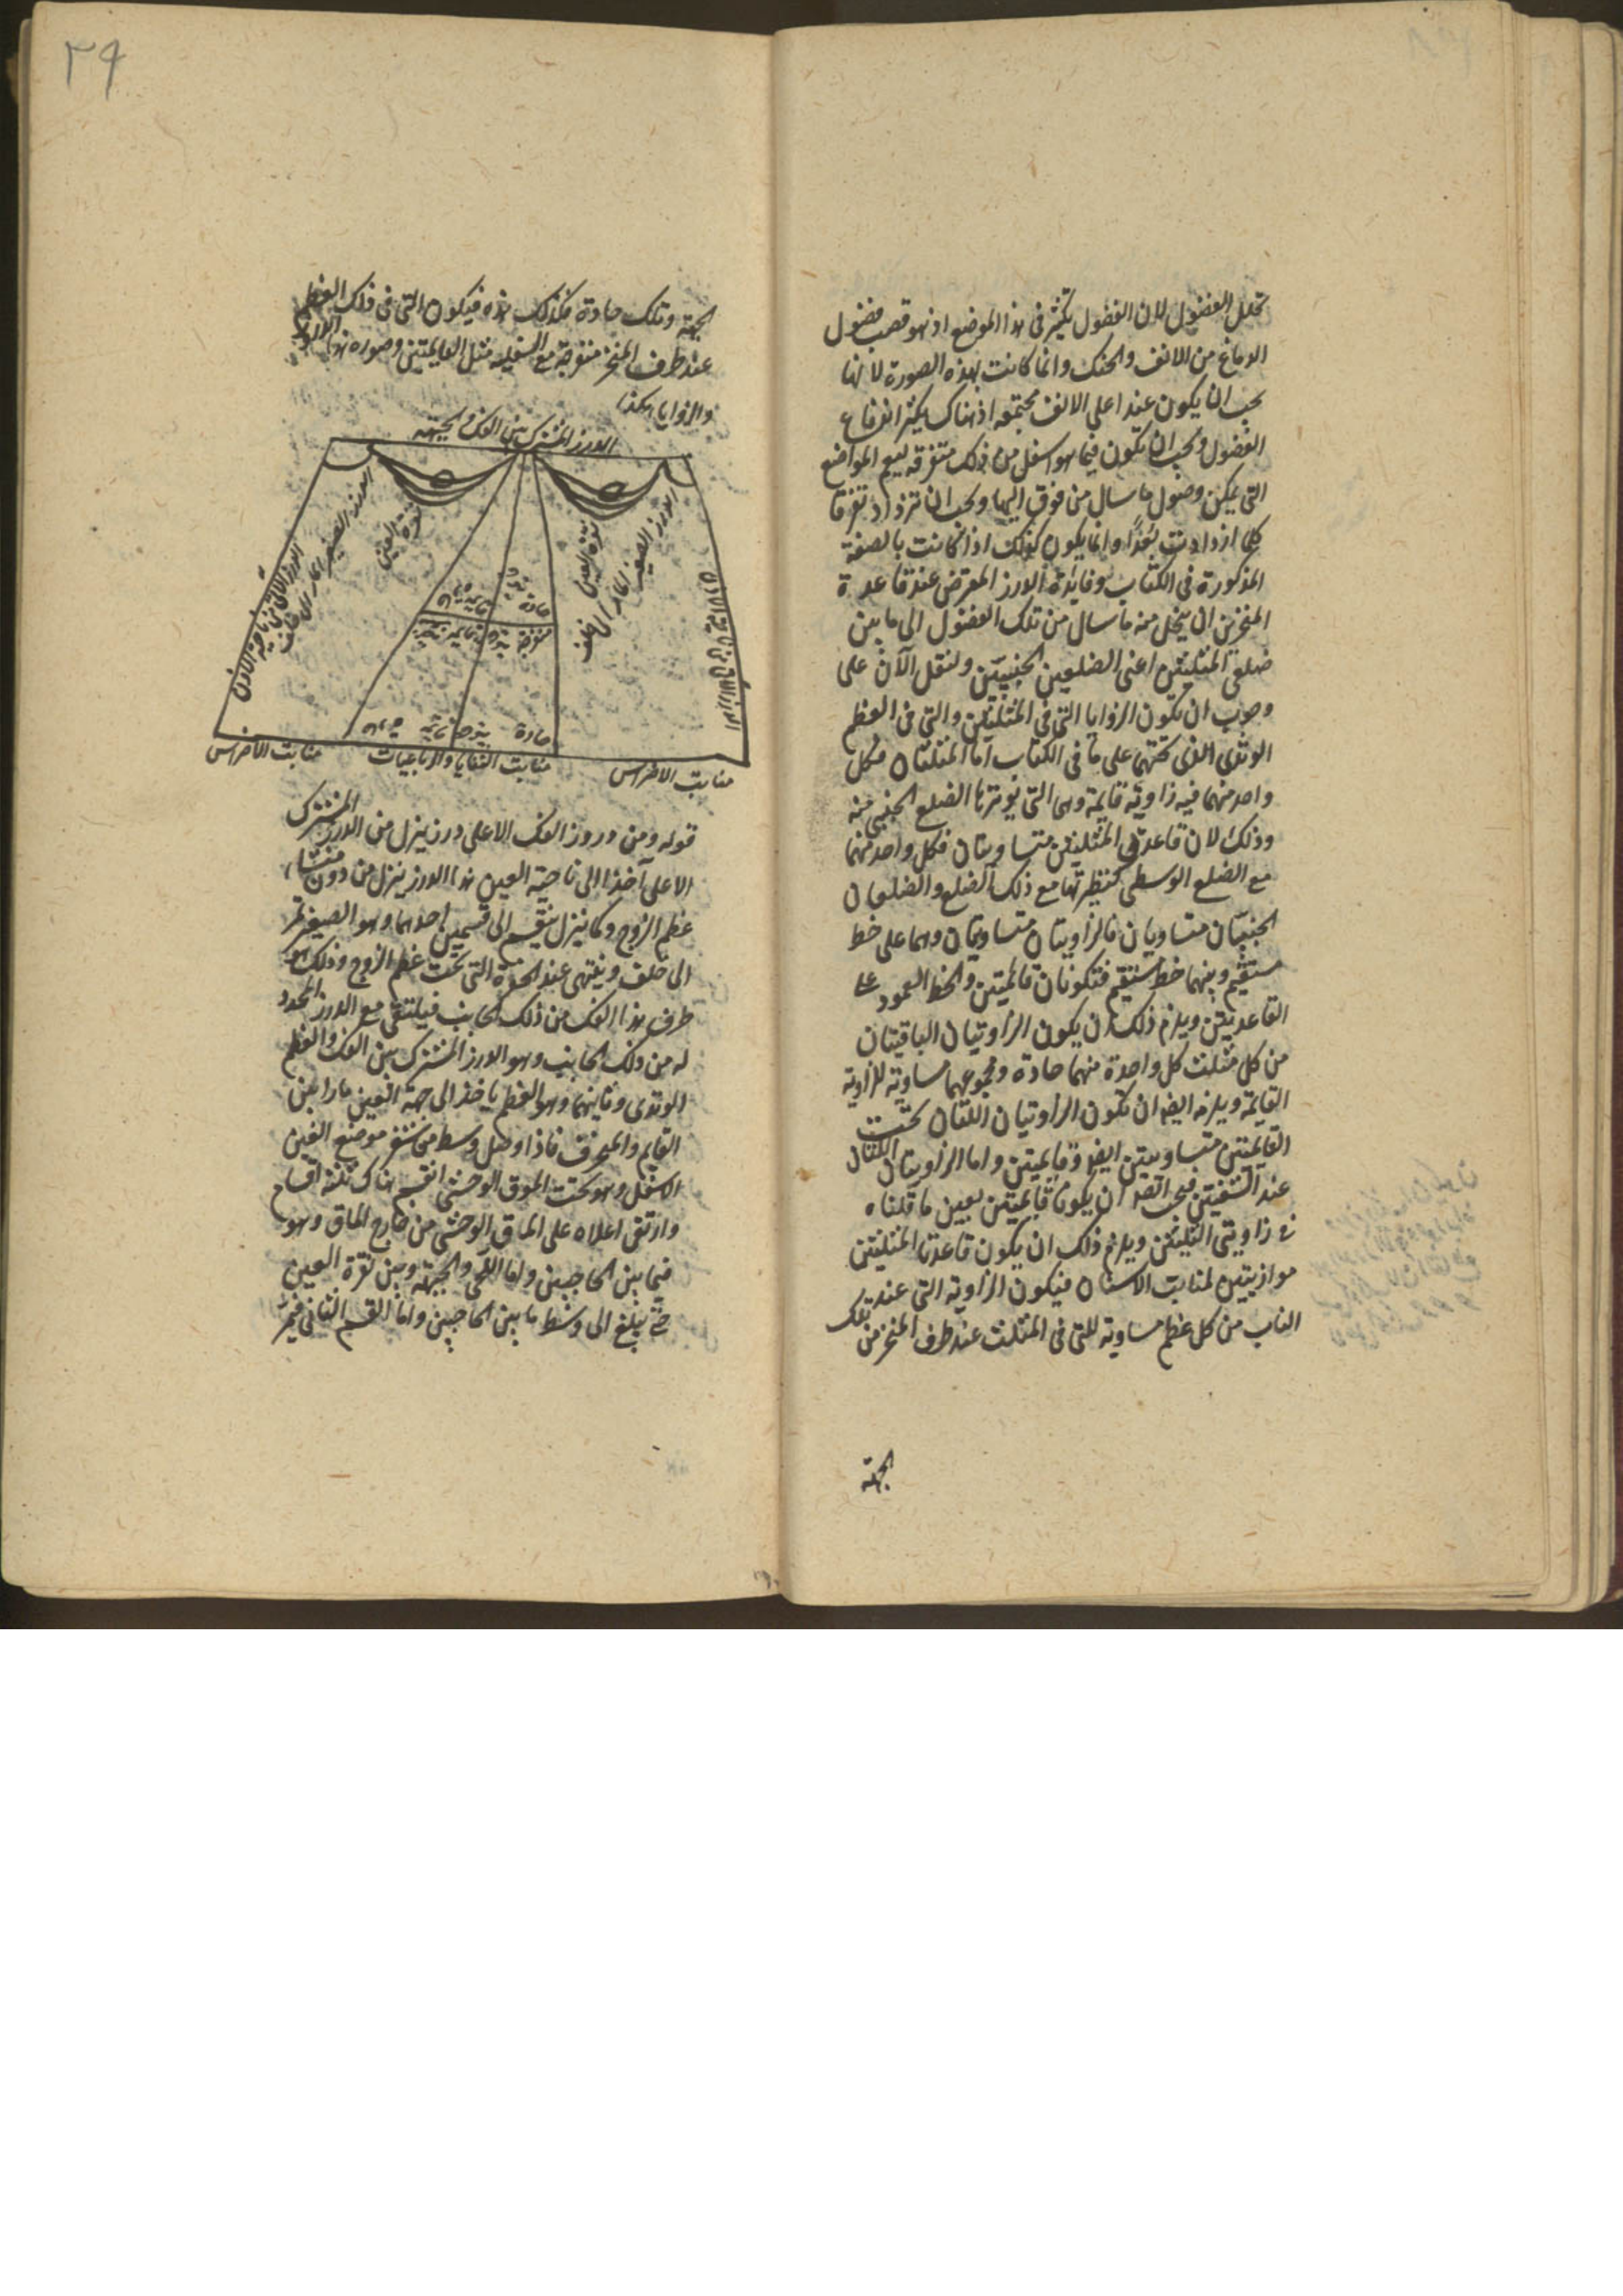 تحلل الفضول لان الفضول تكثر فى هذا الموضع اذ هو قصب فضول
الدماغ من الانف والحنك وانما كانت بهذه الصورة لانها
يجب ان يكون عند اعلى الانف مجتمعه اذ هناك يكثر اندفاع
الفضول ويجب ان يكون فيما هو اسفل من ذلك متفرقه ليعم المواضع
التى يمكن وصول ما سال من فوق اليها ويجب ان تزداد تفرقا
كلما ازدادت بعدًا وانما يكون كذلك اذا كانت بالصفة
المذكورة فى الكتاب وفايدة الدرز المعرض عند قاعدة
المنخرين ان يتحلل منه ما سال من تلك الفضول الى ما بين
ضلعى المثلثين اعنى الضلعين الجنبيين ولنقل الآن على
وجوب ان تكون الزوايا التى فى المثلثين والتى فى العظم
الوتدى الذى تحتهما على ما فى الكتاب اما المثلثان فكل
واحد منهما فيه زاوية قايمة وهى التى يوترها الضلع الجنبى منه
وذلك لان قاعدتى المثلثين متساويتان فكل واحد منهما
مع الضلع الوسطى كنظيرتها مع ذلك الضلع والضلعان
الجنبيان متساويان فالزاويتان متساويتان وهما على خط
مستقيم وبينهما خط مستقيم فتكونان قائمتين والخط العمود على
القاعدتين ويلزم ذلك ان يكون الزاويتان الباقيتان
من كل مثلث كل واحدة منهما حادة ومجموعهما مساوية للزاوية
القايمة ويلزم ايضا ان تكون الزاويتان اللتان تحت
القايمتين متساويتين ايضا وقايمتين واما الزاويتان اللتان
عند الثنيتين فيجب ايضا ان يكونا قايمتين بعين ما قلناه
فى زاويتى المثلثين ويلزم ذلك ان يكون قاعدتا المثلثين
موازيتين لمنابت الاسنان فيكون الزاوية التى عند تلك
الناب من كل عظم مساوية للتى فى المثلث عند طرف المنخر من
الجهة
٣٩
الجهة وتلك حادة فكذلك هذه فيكون التى فى ذلك العظم
عند طرف المنخر منفرجة مع السفليه مثل القايمتين وصورة هذا الدروز
والزوايا هكذا
الدرز المشترك بين الفك والجبهه
الدرز الصغير المار الى خلف
نقرة العين
نقرة العين
الدرز الصغير المار الى خلف
حادة
قايمه
منفرجة
حادة
منابت الاضراس
منابت الثنايا والرباعيات
منابت الاضراس
قوله ومن دروز الفك الاعلى درز ينزل من الدرز المشترك
الاعلى آخذا الى ناحية العين هذا الدرز ينزل من دون منشاء
عظم الزوج وكما ينزل ينقسم الى قسمين احدهما وهو الصغير يمر
الى خلف وينتهى عند الحفرة التى تحت عظم الزوج وذلك هو
طرف هذا الفك من ذلك الجانب فيلتقى مع الدرز المحدد
له من ذلك الجانب وهو الدرز المشترك بين الفك والعظم
الوتدى وثانيهما وهو العظم ياخذ الى جهة العين مارا بين
القايم والمنحرف فاذا وصل وسط من نقر موضع العين
الاسفل وهو تحت الموق الوحشى انقسم هناك ثلثة اقسام
وارتقى اعلاه على الماق الوحشى من خارج الماق وهو
فيما بين الحاجبين واما القحف والجبهة وبين نقرة العين
حتى يبلغ الى وسط ما بين الحاجبين واما القسم الثانى فيمر